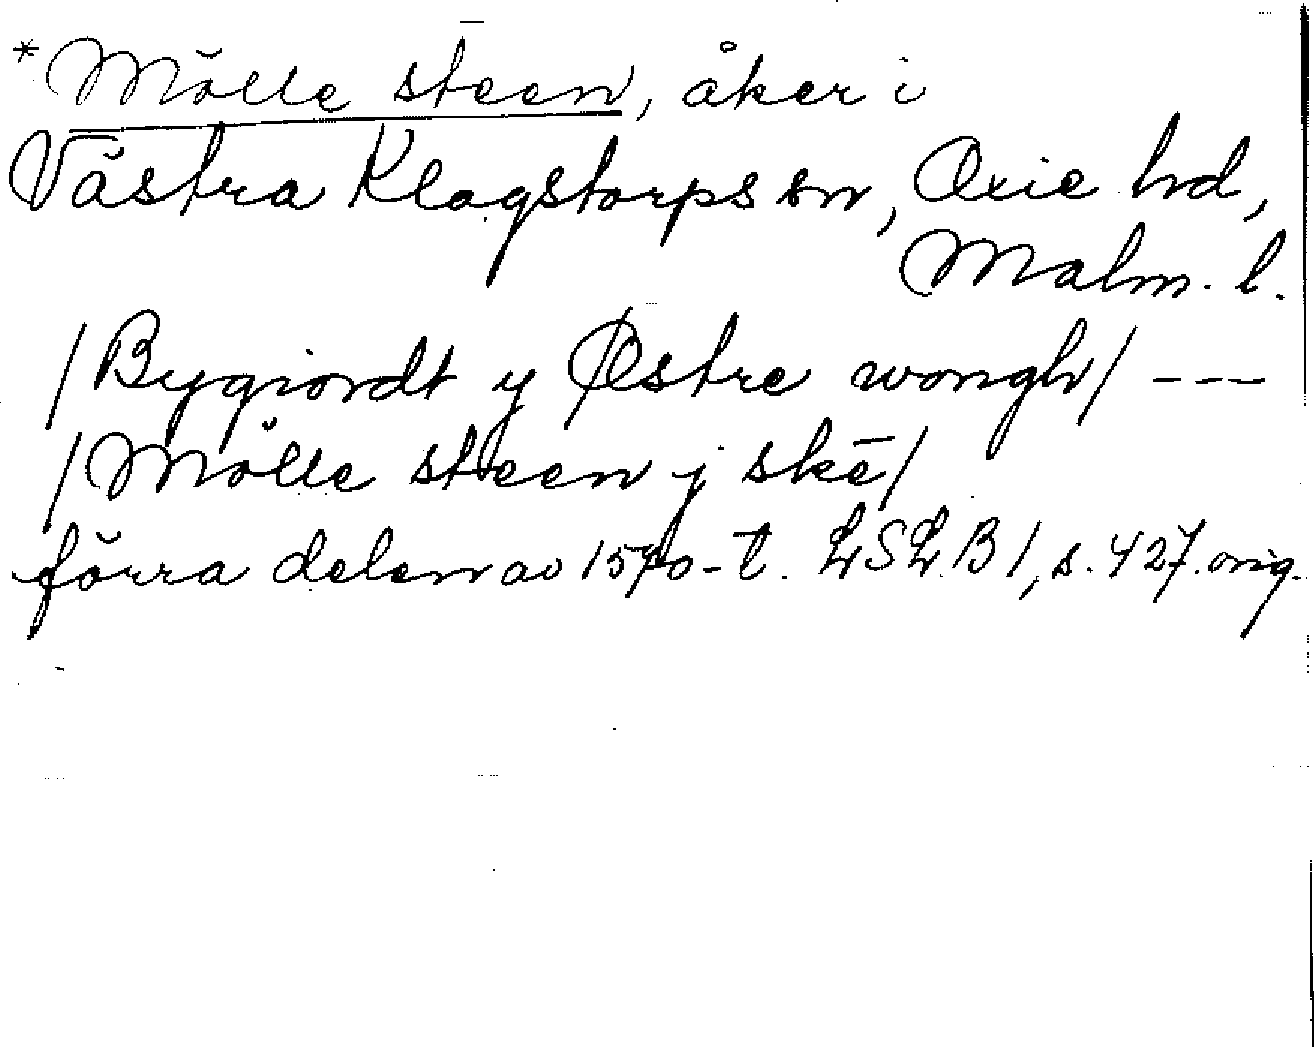 *Mölle steen, åker i
Västra Klagstorps sn, Oxie hd,
Malm. l.
/Bygiordt y Østre wongh/ ---
/Mölle steen j skē/
förra delen av 1570-t. LSLB 1, s. 427. orig.